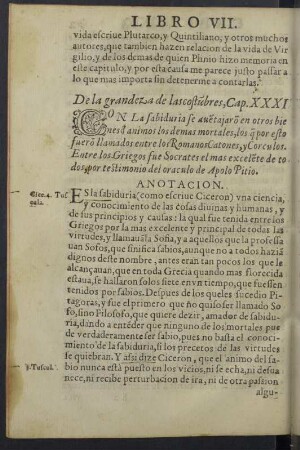 LIBRO VII.
vida escriue Plutarco, y Quintiliano, y otros muchos
autores, que tambien hazen relacion de la vida de Vir
gilio, y de los demas de quien Plinio hizo memoria en
este capitulo, y por esta causa me parece justo passar a
lo que mas importa sin detenerme a contarlas.
De la grandeza de las costũbres, Cap. XXXI
CON La sabiduria se auẽtajarõ en otros bie
nes d̃ animos los demas mortales, los q̃ por esto
fuerõ llamados entre los Romanos Catones, y Corculos.
Entre los Griegos fue Socrates el mas excelẽte de to
dos, por testimonio del oraculo de Apolo Pitio.
ANOTACION.
Cice. 4. Tus
ES la sabiduria (como escriue Ciceron) vna ciencia,
y conocimiento de las cosas diuinas y humanas, y
de sus principios y causas: la qual fue tenida entre los
Griegos por la mas excelente y principal de todas las
virtudes, y llamauãla Sofia, y a aquellos que la professa
uan Sofos, que sinifica sabios, aunque no a todos hazia
dignos deste nombre, antes eran tan pocos los que la
alcançauan, que en toda Grecia quando mas florecida
estaua, se hallaron solos siete en vn tiempo, que fuessen
tenidos por sabios. Despues de los quales sucedio Pi-
tagoras, y fue el primero que no quiso ser llamado So
fo, sino Filosofo, que quiere dezir, amador de sabidu-
ria, dando a entẽder que ninguno de los mortales pue
de verdaderamente ser sabio, pues no basta el conoci-
miento de la sabiduria, si los precetos de las virtudes
se quiebran. Y assi dize Ciceron, que el animo del sa-
3. Tuscul.
bio nunca està puesto en los vicios, ni se echa, ni desua
nece, ni recibe perturbacion de ira, ni de otra passion
algu-